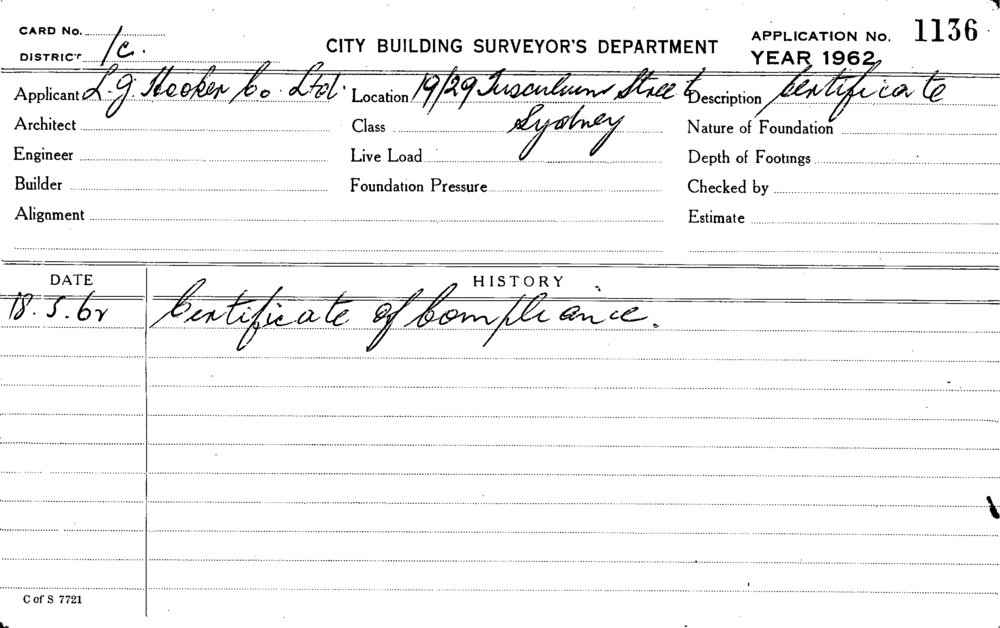 CARD No.
DISTRICT 1c.
CITY BUILDING SURVEYOR'S DEPARTMENT
APPLICATION No. 1136
YEAR 1962
Applicant L. J. Hooker Co. Ltd. Location 19/29 Tusculum Street Description Certificate
Architect Class Sydney Nature of Foundation
Engineer Live Load Depth of Footings
Builder Foundation Pressure Checked by
Alignment Estimate
DATE HISTORY
18.5.62 Certificate of Compliance.
C of S 7721